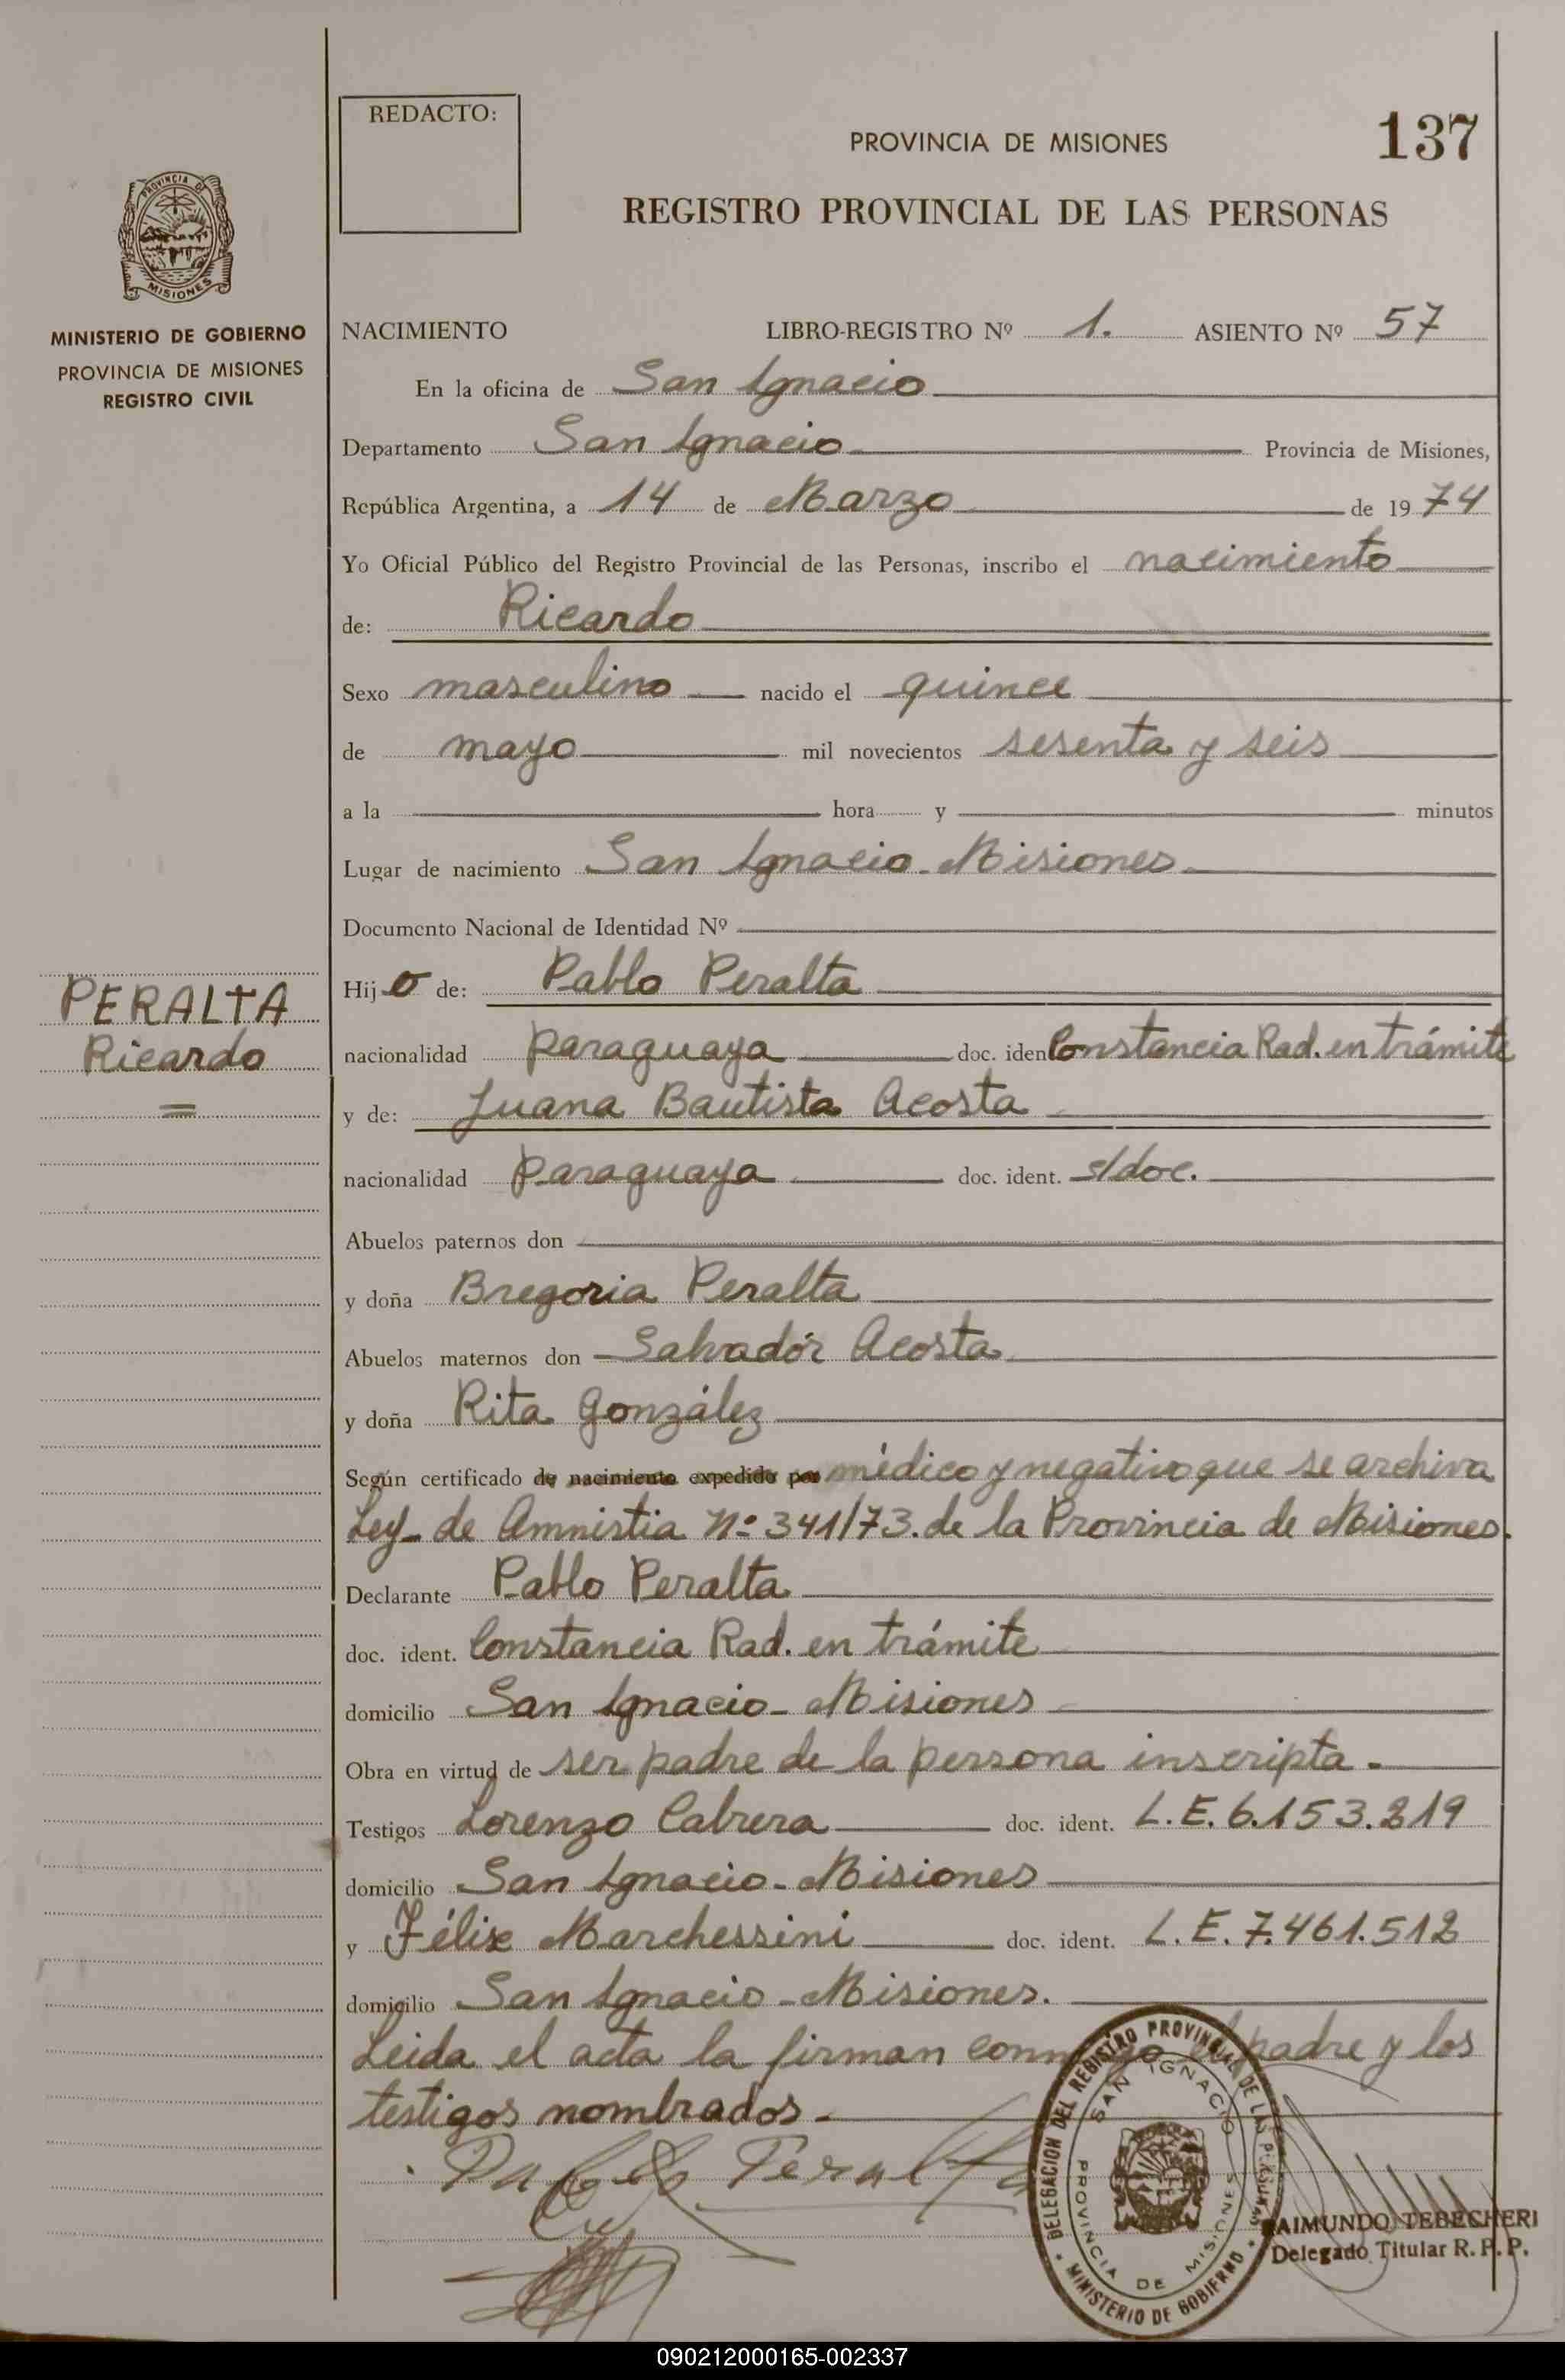 REDACTO:
137
PROVINCIA DE MISIONES
REGISTRO PROVINCIAL DE LAS PERSONAS
PROVINCIA DE
MISIONES
MINISTERIO DE GOBIERNO
PROVINCIA DE MISIONES
REGISTRO CIVIL
NACIMIENTO LIBRO-REGISTRO Nº 1. ASIENTO Nº 57
En la oficina de San Ignacio
Departamento San Ignacio Provincia de Misiones,
República Argentina, a 14 de Marzo de 1974
Yo Oficial Público del Registro Provincial de las Personas, inscribo el nacimiento
de: Ricardo
Sexo masculino nacido el quince
de mayo mil novecientos sesenta y seis
a la hora y minutos
Lugar de nacimiento San Ignacio - Misiones
Documento Nacional de Identidad Nº
Hijo de: Pablo Peralta
PERALTA
Ricardo
nacionalidad paraguaya doc. iden Constancia Rad. en trámite
y de: Juana Bautista Acosta
nacionalidad paraguaya doc. ident. s/doc.
Abuelos paternos don
y doña Bregoria Peralta
Abuelos maternos don Salvador Acosta
y doña Rita González
Según certificado de nacimiento expedido por médico y negativo que se archiva
Ley de Amnistia Nº 341/73. de la Provincia de Misiones.
Declarante Pablo Peralta
doc. ident. Constancia Rad. en trámite
domicilio San Ignacio - Misiones
Obra en virtud de ser padre de la persona inscripta.
Testigos Lorenzo Cabrera doc. ident. L.E. 6.153.219
domicilio San Ignacio - Misiones
y Félix Marchessini doc. ident. L.E. 7.461.512
domicilio San Ignacio - Misiones.
Leida el acta la firman conmigo el padre y los
testigos nombrados.
Pablo Peralta
DELEGACION DEL REGISTRO PROVINCIAL DE LAS PERSONAS
SAN IGNACIO
PROVINCIA DE MISIONES
MINISTERIO DE GOBIERNO
RAIMUNDO TEBECHERI
Delegado Titular R. P. P.
090212000165-002337